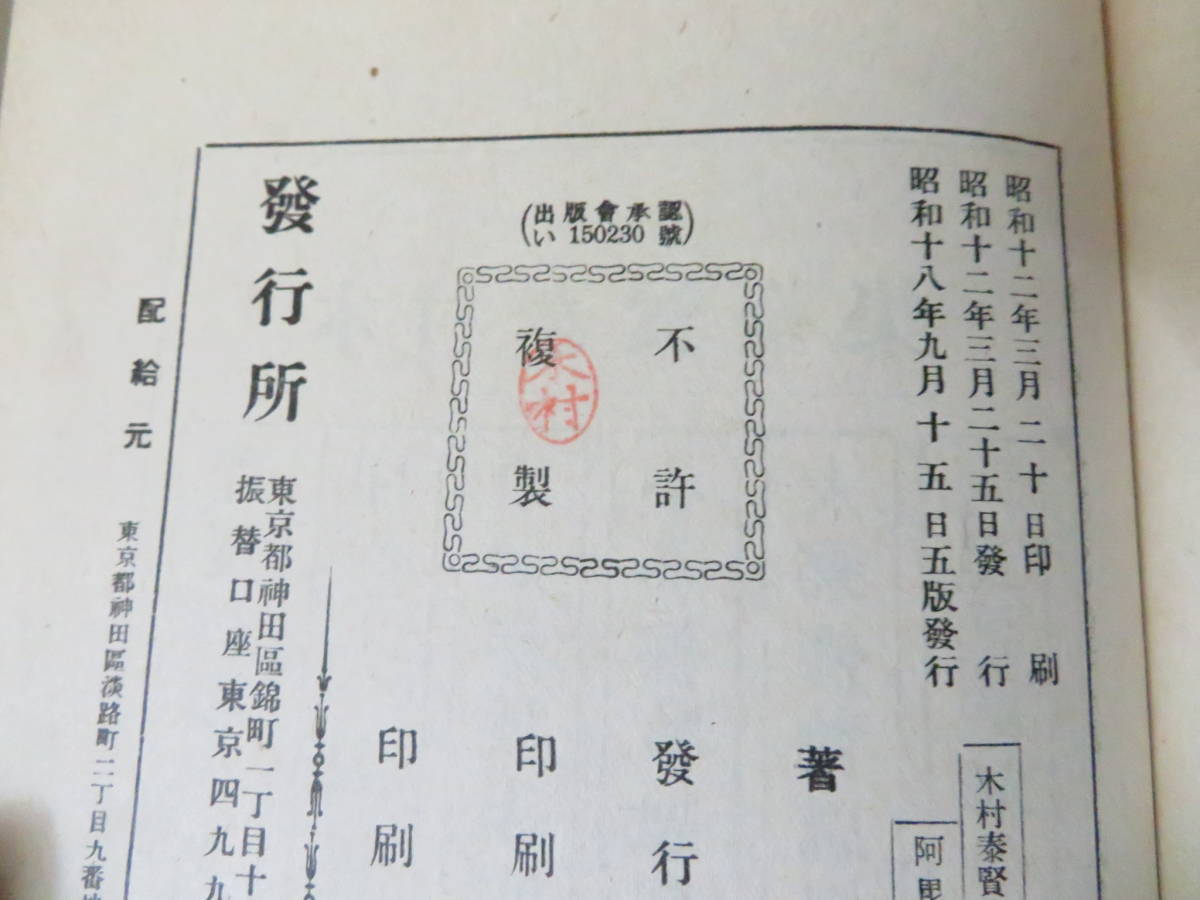 昭和十二年三月二十日印刷
昭和十二年三月二十五日發行
昭和十八年九月十五日五版發行
木村泰賢
阿
著
(出版會承認
い150230號)
不許
複製
木村
發行
印刷
印刷
發行所
東京都神田區錦町一丁目十
振替口座東京四九九
配給元
東京都神田區淡路町二丁目九番地